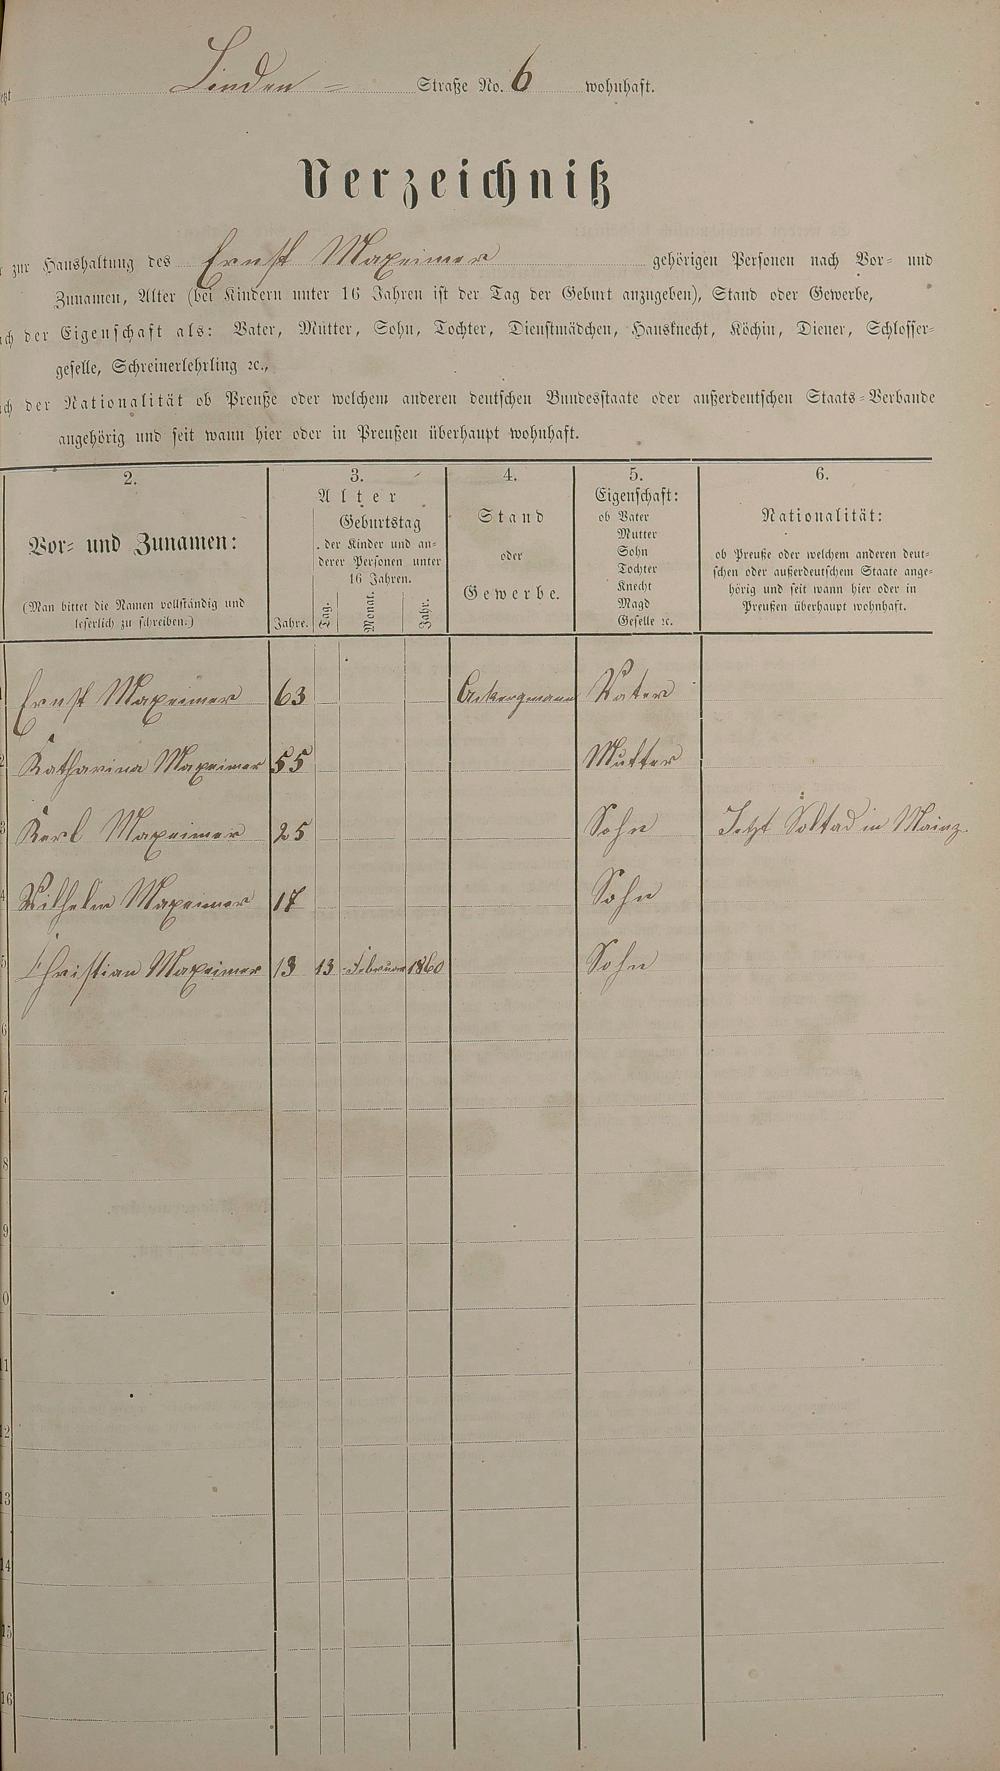 Linden = Straße No. 6 wohnhaft.
Verzeichniß
zur Haushaltung des Ernst Maxeimer gehörigen Personen nach Vor- und
Zunamen, Alter (bei Kindern unter 16 Jahren ist der Tag der Geburt anzugeben), Stand oder Gewerbe,
der Eigenschaft als: Vater, Mutter, Sohn, Tochter, Dienstmädchen, Hausknecht, Köchin, Diener, Schlosser-
geselle, Schreinerlehrling ꝛc.,
der Nationalität ob Preuße oder welchem anderen deutschen Bundesstaate oder außerdeutschen Staats-Verbande
angehörig und seit wann hier oder in Preußen überhaupt wohnhaft.
2. 3. 4. 5. 6.
Vor- und Zunamen:
(Man bittet die Namen vollständig und
leserlich zu schreiben.)
Alter
Geburtstag
der Kinder und an-
derer Personen unter
16 Jahren.
Jahre. Tag. Monat. Jahr.
Stand
oder
Gewerbe.
Eigenschaft:
ob Vater
Mutter
Sohn
Tochter
Knecht
Magd
Geselle ꝛc.
Nationalität:
ob Preuße oder welchem anderen deut-
schen oder außerdeutschem Staate ange-
hörig und seit wann hier oder in
Preußen überhaupt wohnhaft.
1 Ernst Maxeimer 63 Ackergmann Vater
2 Katharina Maxeimer 55 Mutter
3 Karl Maxeimer 25 Sohn Jetzt Soltad in Mainz.
4 Wilhelm Maxeimer 17 Sohn
5 Christian Maxeimer 13 13 Februar 1860 Sohn
6
7
8
9
0
11
12
13
14
15
16